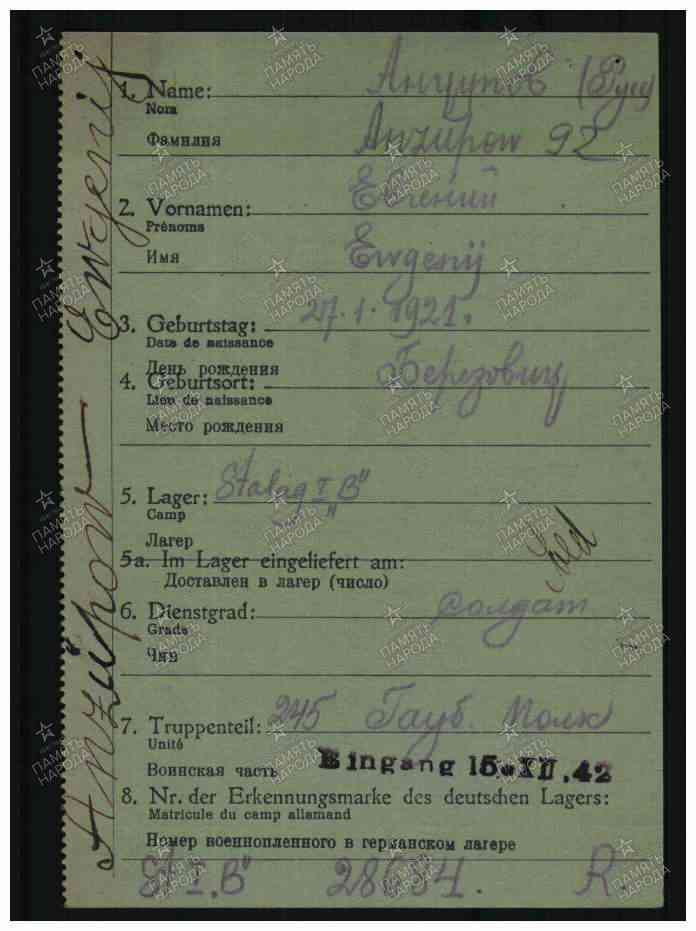 Anzüpow Ewgenij
1. Name: Анцупов (Рус)
Nom
Фамилия Anzüpow 92
2. Vornamen: Евгений
Prénoms
Имя Ewgenij
3. Geburtstag: 27.1.1921.
Date de naissance
День рождения
4. Geburtsort: Березовиц
Lieu de naissance
Место рождения
5. Lager: Stalag I B"
Camp
Лагер
5a. Im Lager eingeliefert am:
Доставлен в лагер (число)
Sold
6. Dienstgrad: солдат
Grade
Чин
7. Truppenteil: 245 Гауб. Полк
Unité
Воинская часть Eingang 15. XII. 42
8. Nr. der Erkennungsmarke des deutschen Lagers:
Matricule du camp allemand
Номер военнопленного в германском лагере
St I. B" 28684. R.
ПАМЯТЬ НАРОДА